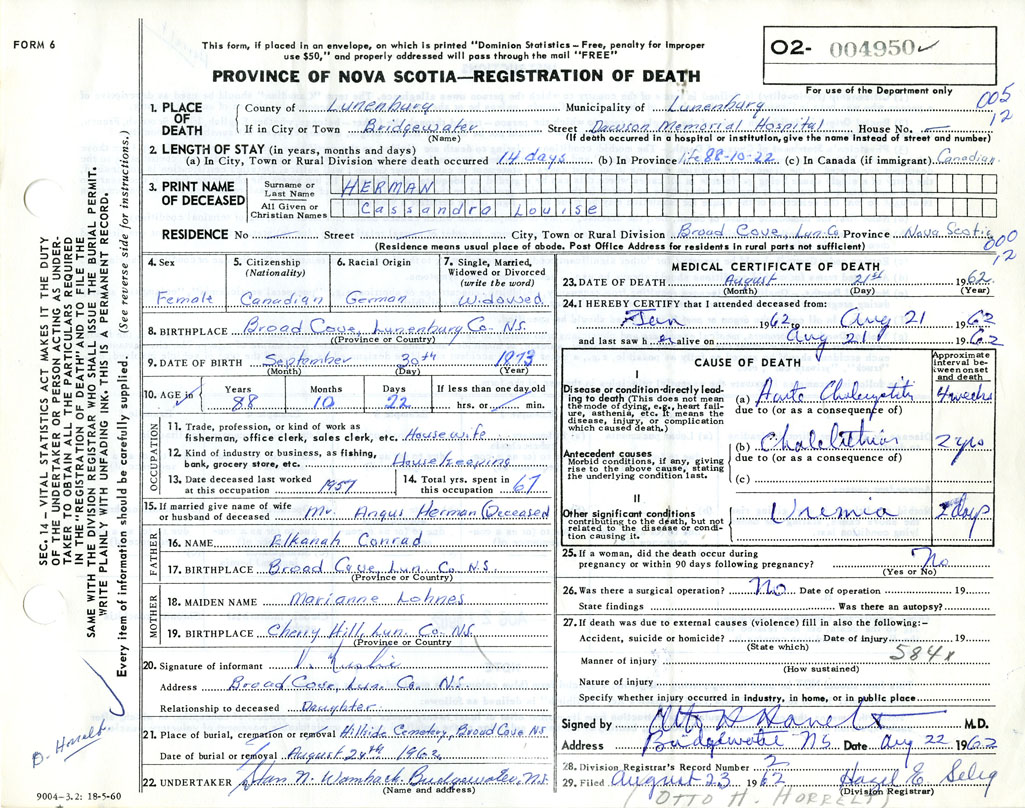 FORM 6
This form, if placed in an envelope, on which is printed "Dominion Statistics – Free, penalty for improper
use $50," and properly addressed will pass through the mail "FREE"
PROVINCE OF NOVA SCOTIA—REGISTRATION OF DEATH
O2- 004950
For use of the Department only
005
12
1. PLACE OF DEATH
County of Lunenburg Municipality of Lunenburg
If in City or Town Bridgewater Street Dawson Memorial Hospital House No. —
(Name) (If death occurred in a hospital or institution, give the name instead of street and number)
2. LENGTH OF STAY (in years, months and days)
(a) In City, Town or Rural Division where death occurred 14 days (b) In Province life 88-10-22 (c) In Canada (if immigrant) Canadian
3. PRINT NAME OF DECEASED
Surname or Last Name HERMAN
All Given or Christian Names Cassandra Louise
RESIDENCE No — Street — City, Town or Rural Division Broad Cove, Lun. Co Province Nova Scotia
(Residence means usual place of abode. Post Office Address for residents in rural parts not sufficient)
000
12
4. Sex Female
5. Citizenship (Nationality) Canadian
6. Racial Origin German
7. Single, Married, Widowed or Divorced (write the word) Widowed
8. BIRTHPLACE Broad Cove, Lunenburg Co. N.S.
(Province or Country)
9. DATE OF BIRTH September 30th 1873
(Month) (Day) (Year)
10. AGE in Years 88 Months 10 Days 22 If less than one day old hrs. or min.
OCCUPATION
11. Trade, profession, or kind of work as fisherman, office clerk, sales clerk, etc. Housewife
12. Kind of industry or business, as fishing, bank, grocery store, etc. Housekeeping
13. Date deceased last worked at this occupation 1957
14. Total yrs. spent in this occupation 67
15. If married give name of wife or husband of deceased Mr. Angus Herman (Deceased)
FATHER
16. NAME Elkanah Conrad
17. BIRTHPLACE Broad Cove, Lun. Co. N.S.
(Province or Country)
MOTHER
18. MAIDEN NAME Marianne Lohnes
19. BIRTHPLACE Cherry Hill, Lun. Co. N.S.
(Province or Country)
20. Signature of informant
Address Broad Cove, Lun. Co. N.S.
Relationship to deceased Daughter
21. Place of burial, cremation or removal Hillside Cemetery, Broad Cove NS
Date of burial or removal August 24th 1962
22. UNDERTAKER Wamback Bridgewater, N.S.
(Name and address)
MEDICAL CERTIFICATE OF DEATH
23. DATE OF DEATH August 21st 1962
(Month) (Day) (Year)
24. I HEREBY CERTIFY that I attended deceased from:
Jan 1962 to Aug 21 1962
and last saw her alive on Aug 21 1962
CAUSE OF DEATH
Approximate interval between onset and death
I
Disease or condition directly leading to death (This does not mean the mode of dying, e.g., heart failure, asthenia, etc. It means the disease, injury, or complication which caused death.)
(a) Acute Cholecystitis 4 weeks
due to (or as a consequence of)
Antecedent causes
Morbid conditions, if any, giving rise to the above cause, stating the underlying condition last.
(b) 2 yrs
due to (or as a consequence of)
(c)
II
Other significant conditions
contributing to the death, but not related to the disease or condition causing it.
Uremia 2 days
25. If a woman, did the death occur during
pregnancy or within 90 days following pregnancy? No
(Yes or No)
26. Was there a surgical operation? No Date of operation 19
State findings Was there an autopsy?
27. If death was due to external causes (violence) fill in also the following:–
Accident, suicide or homicide? Date of injury 19
(State which)
584x
Manner of injury
(How sustained)
Nature of injury
Specify whether injury occurred in industry, in home, or in public place
Signed by M.D.
Address Bridgewater N.S. Date Aug 22 1962
28. Division Registrar's Record Number 2
29. Filed August 23 1962 Hazel E. Selig
(Division Registrar)
(OTTO H. HORRELT)
SEC. 14 – VITAL STATISTICS ACT MAKES IT THE DUTY
OF THE UNDERTAKER OR PERSON ACTING AS UNDER-
TAKER TO OBTAIN ALL THE PARTICULARS REQUIRED
IN THE "REGISTRATION OF DEATH" AND TO FILE THE
SAME WITH THE DIVISION REGISTRAR WHO SHALL ISSUE THE BURIAL PERMIT.
WRITE PLAINLY WITH UNFADING INK. THIS IS A PERMANENT RECORD.
Every item of information should be carefully supplied. (See reverse side for instructions.)
9004-3.2: 18-5-60